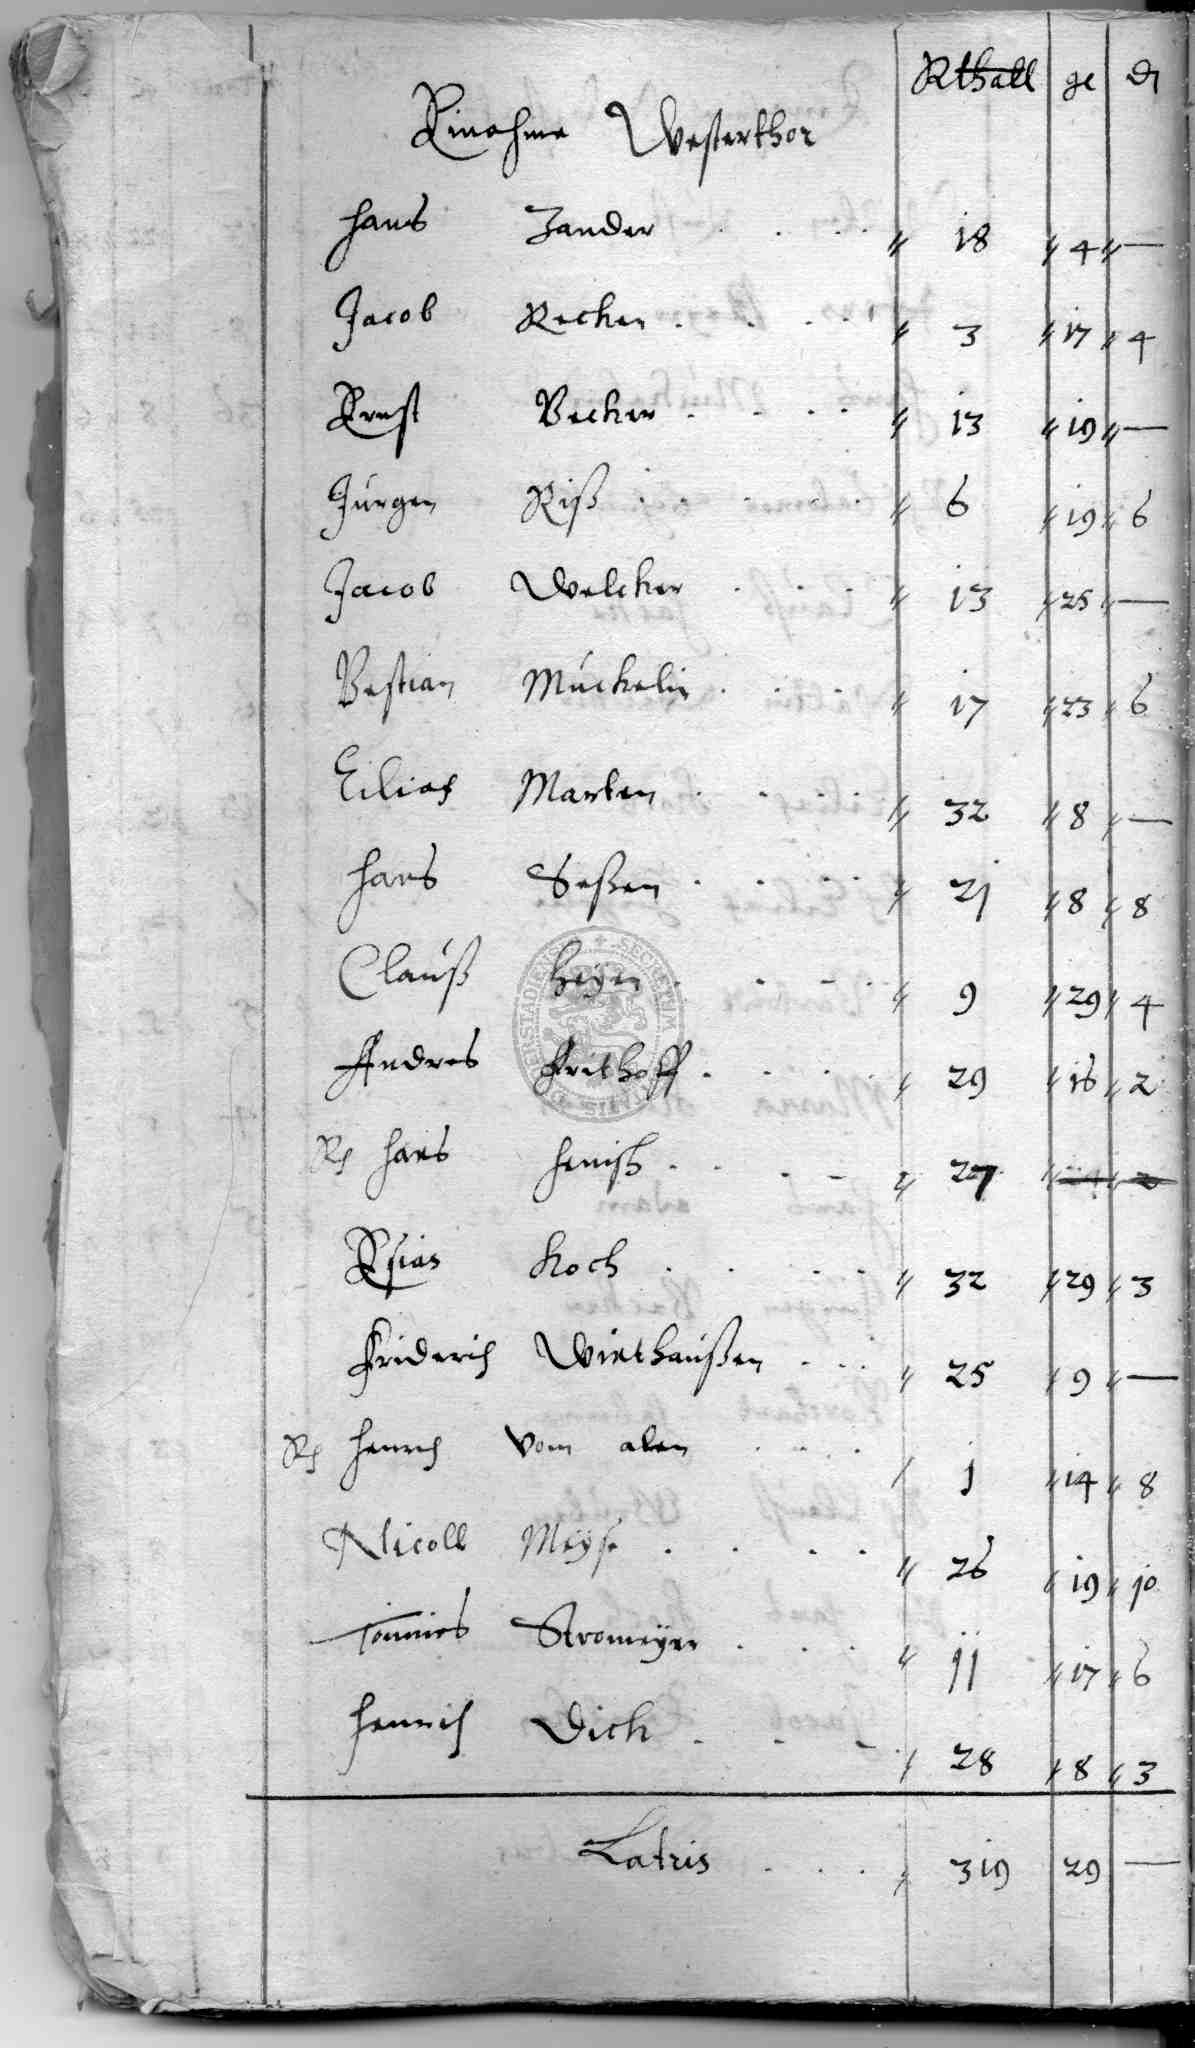 Rthall ge d
Einahme Westerthor
Hans Zander . . . 18 4 —
Jacob Recken . . . 3 17 4
Ernst Becker . . . 13 19 —
Jürgen Riß . . . 6 19 6
Jacob Welcker . . . 13 25 —
Bastian Mückelin . . . 17 23 6
Eilias Marten . . . 32 8 —
Hans Seßen . . . 21 8 8
Clauß Heyen . . . 9 29 4
Andres Frithoff . . . 29 16 2
Hans Henisch . . . 27
Esias Koch . . . 32 29 3
Friderich Wirthaußen . . . 25 9 —
Henrich vom alen . . . 1 14 8
Nicoll Meyse . . . 26 19 10
Tönnies Stromeyer . . . 11 17 6
Henrich Dick . . . 28 8 3
Latris . . . 319 29 —